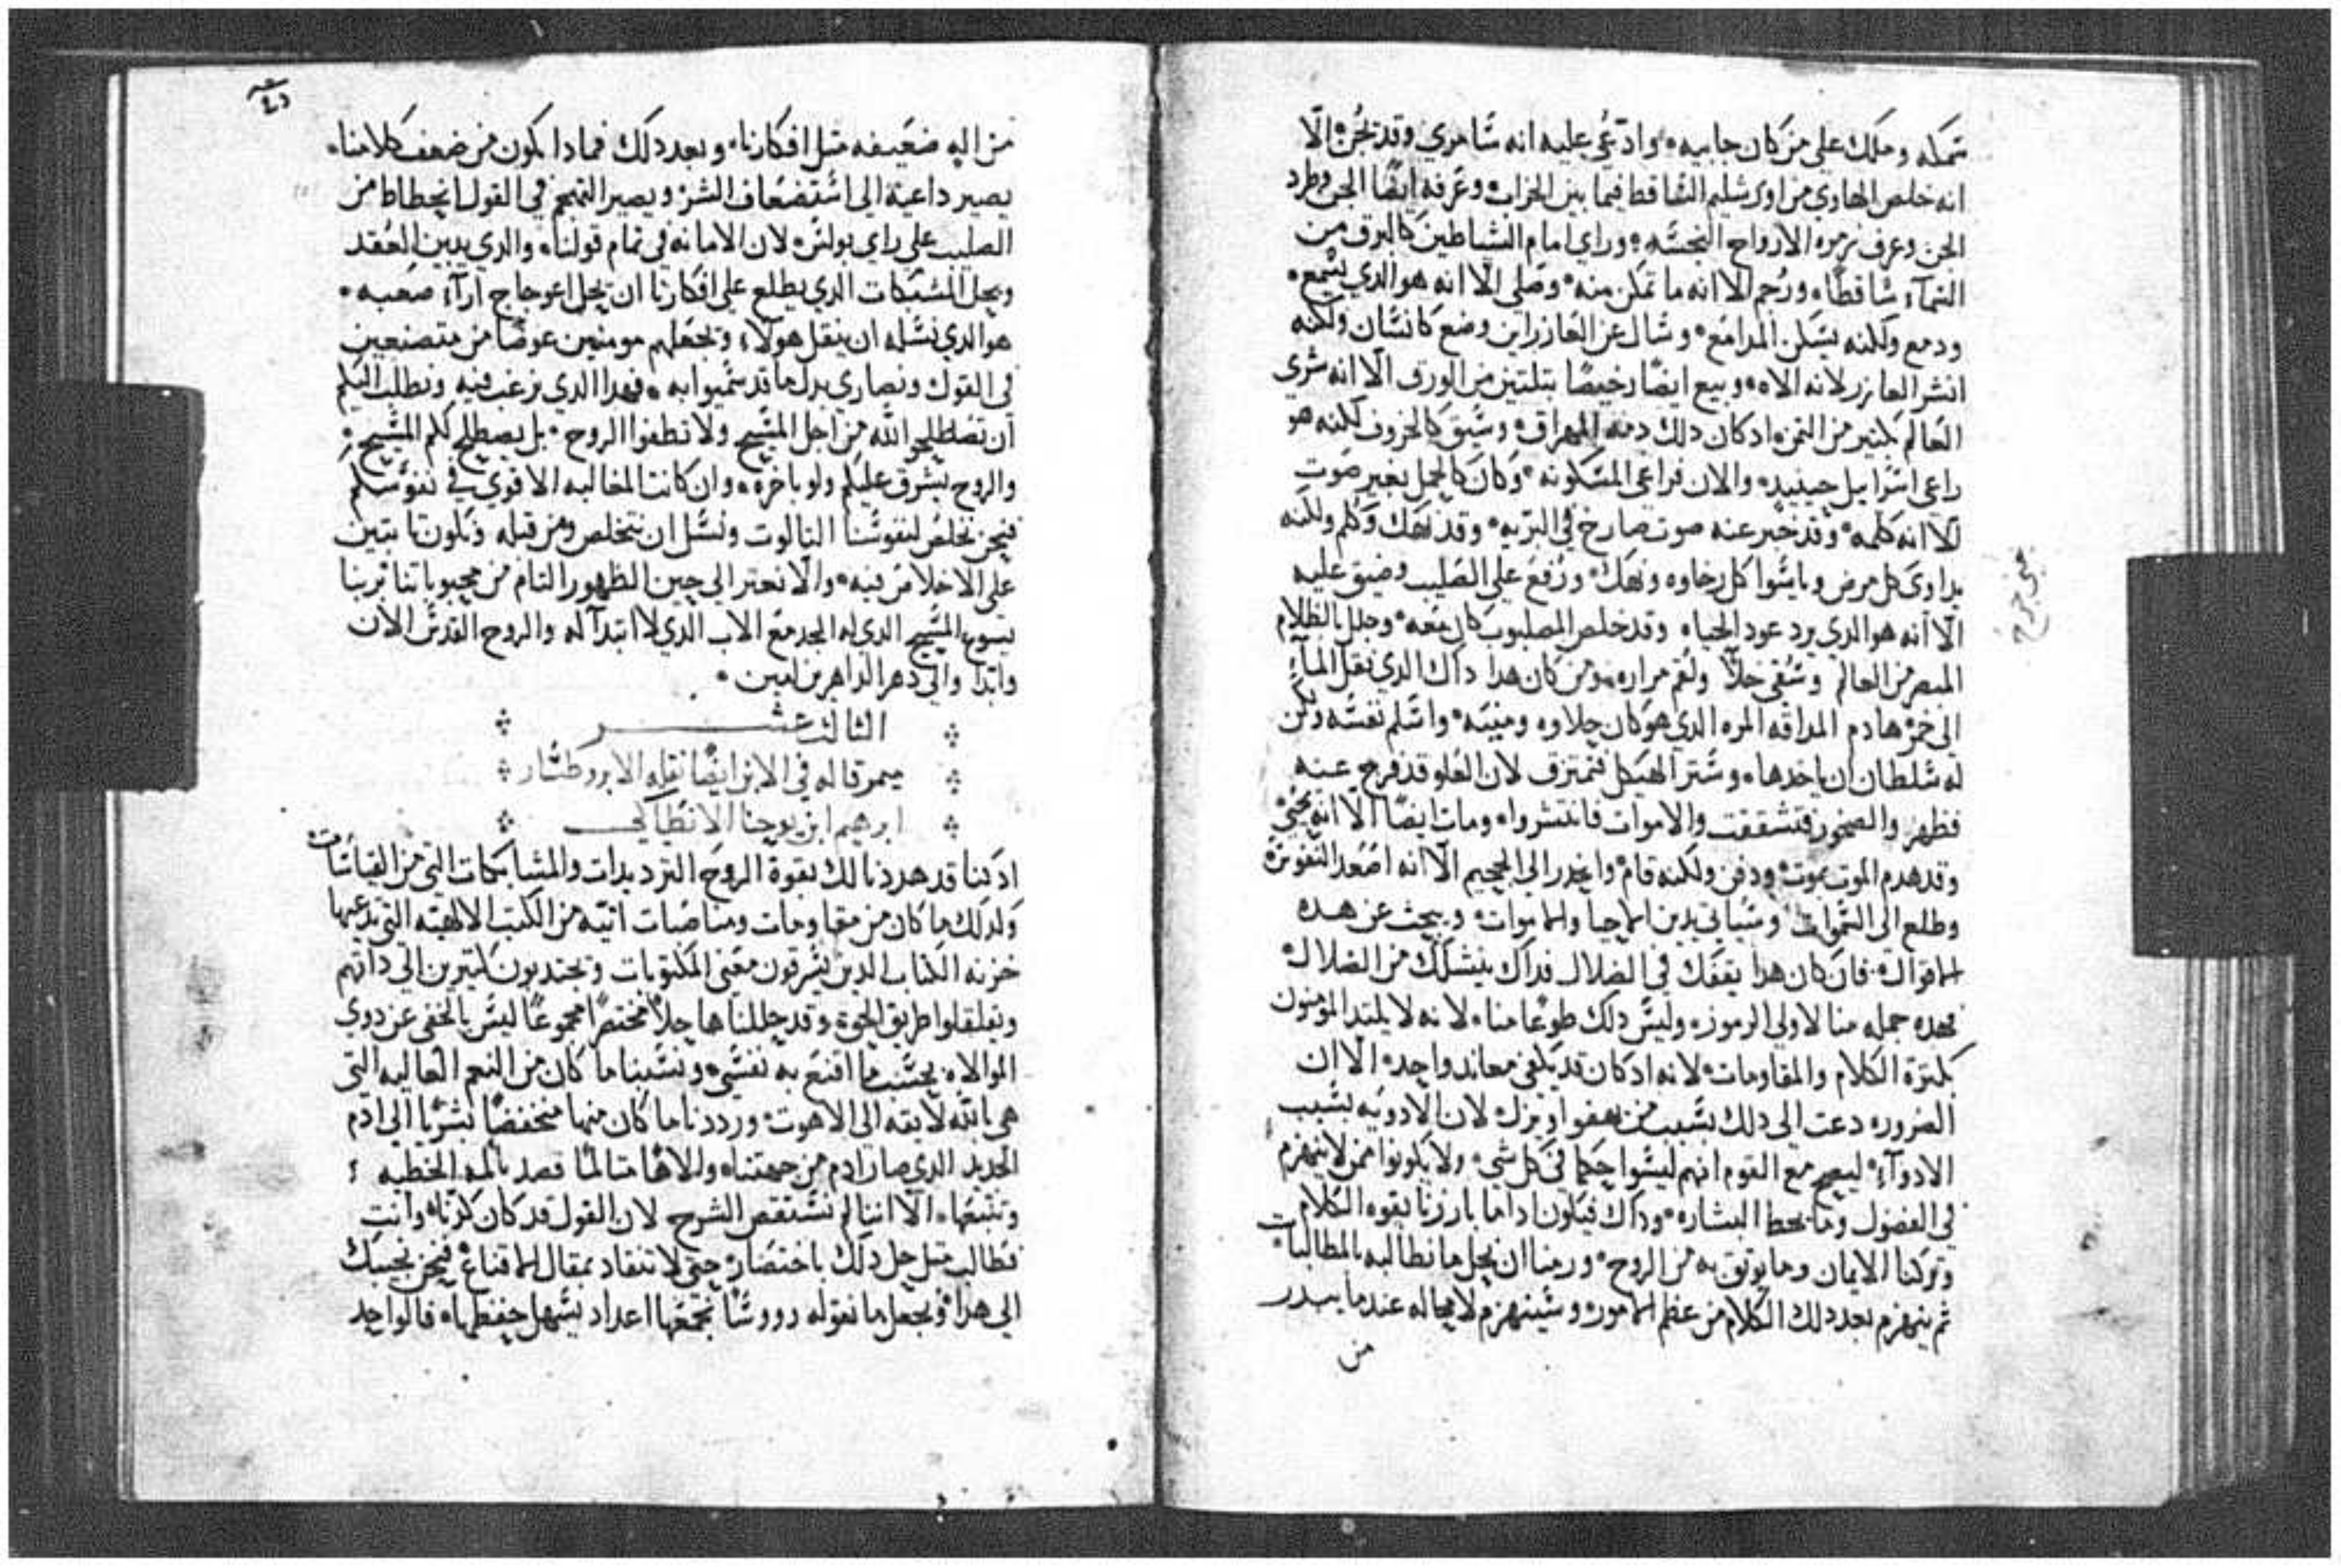 سمكه وملك على من كان جابيه ۰ وادّعي عليه انه شامري وقد بجُن ۰ الّا
انه خلص الهاوي من اورشليم الشاقط فيما بين الخراب ۰ وعَرفه ايضًا الجن وطرد
الجن وعرف زمره الارواح النجسه ۰ وراي امام الشياطين كالبرق من
السماء شاقطًا ۰ ورُجم الا انه ما تمكن منه ۰ وصلى الّا انه هو الذي يسمع ۰
ودمع ولكنه يسكن المدامع ۰ وسال عن العازر اين وضع كانسان ولكنه
انشر العازر لانه الاه ۰ وبيع ايضًا رخيصًا بتلتين من الورق الّا انه شرى
العالم بكتير من التمن ۰ اد كان دلك دمه المهراق ۰ وسيق كالخروف لكنه هو
راعي اسراييل حينيد ۰ والان فراعي المسكونه ۰ وكان كالحمل بغير صوت
الا انه كلمه ۰ وقد خبر عنه صوت صارخ في البريه ۰ وقد نهك وكلم ولكنه
يداوى كل مرض وياسوا كل رخاوه ونهك ۰ ورُفع على الصليب وضيق عليه
الّا انه هو الدي يرد عود الحياه وقد خلص المصلوب كان معه ۰ وجلل بالظلام
المبصر من العالم وسُقي خلًّا ولُقم مراره ۰ ومن كان هدا داك الدي نقل المآء
الى خمر هادم المداقه المره الدي هو كان حلاوه ومنيه ۰ واسلم نفسه ولكن
له سلطان ان ياخدها ۰ وستر الهيكل فتمزق لان العلو قد فرج عينه
فظهر والصخور فتشققت والاموات فانتشروا ۰ ومات ايضًا الّا انه يحيي
وقد هدم الموت بموت ۰ ودفن ولكنه قام ۰ وانحدر الى الجحيم الّا انه اصعد النفوس
وطلع الى السموات ۰ وسياتي يدين الاحيا والاموات ۰ ويبحث عن هده
الاقوال ۰ فان كان هدا يقفك في الضلال فداك ينشلك من الضلال ۰
فهده جمله منا لاولي الرموز ۰ وليس دلك طوعًا منا ۰ لانه لا يلتد المومنون
بكترة الكلام والمقاومات ۰ لانه اد كان قد يكفي معاند واحد ۰ الّا ان
الضروره دعت الى دلك بسبب من يهفوا ويزل ۰ لان الادويه بسبب
الادوآء ۰ ليصح مع القوم انهم ليسوا حكما في كل شي ۰ ولا يكونوا ممن لا ينهزم
في الفضول وما يحط البشاره ۰ وداك فيكون ادا ما بارزنا بقوه الكلام
وتركنا الايمان وما يوتق به من الروح ۰ ورمنا ان نحل ما نطالبه بالمطالبات
ثم ينهزم بعد دلك الكلام من عظم الامور ۰ وسينهزم لا محاله عند ما يبدر
من
من اله ضعيفه متل افكارنا ۰ وبعد دلك فمادا يكون من ضعف كلامنا ۰
يصير داعية الى استضعاف السر ويصير التبجح في القول انحطاط من
الصليب على راي بولس ۰ لان الامانه في تمام قولنا ۰ والدي يبين العُقد
ويحل المشبكات الدي يطلع على افكارنا ان يحل اعوجاج اراء صعبه ۰
هو الدي نسله ان ينقل هولآء ويجعلهم مومنين عوضًا من متصنعين
في القول ونصارى بدل ما قد سميوا به ۰ فهدا الدي نرغب فيه ونطلب اليكم
ان تصطلحوا الله من اجل المسيح ولا تطفوا الروح ۰ بل يصطلح لكم المسيح ۰
والروح يشرق عليكم ولو باخره ۰ وان كانت المغالبه الاقوي في نفوسكم
فنحن نخلص لنفوسنا التالوت ونسل ان نتخلص ومن قبله ونكون تابتين
على الاخلاص فيه ۰ والّا نعتر الى حين الظهور التام من محبوباتنا بربنا
يسوع المسيح الدي له المجد مع الاب الدي لا ابتدآ له والروح القدس الان
وابدا والى دهر الداهرين امين ۰
الثالث عشر
ميمر قاله في الابن ايضًا نقله الابروطسار
ابرهيم ابن يوحنا الانطاكي
اد كنا قد هددنا لك بقوة الروح الترديدات والمشابكات التي من القياسات
ولدلك ما كان من مقاومات ومناصبات اتيه من الكتب الالاهيه التي يدعيها
خزنه الكتاب الدين يسرقون معنى المكتوبات ويجتدبون كتيرين الى داتهم
ويقلقلوا طريق الحق ۰ وقد حللناها حلًّا مختصرًا مجموعًا ليس بالخفي عن دوي
الموالاه ۰ بحسب ما اقنع به نفسي ۰ ونسبنا ما كان من النعم العاليه التي
هي بالله لايقه الى الاهوت ۰ ورددنا ما كان منها منخفضًا بشريًا الى ادم
الجديد الدي صار ادم من جهتنا ۰ ولالاهًا متالمًا قصد بالمه الخطيه ؛
وتتبعها ۰ الّا اننا لم نستقص الشرح لان القول قد كان كدّنا ۰ وانت
تطالب متل حل دلك باختصار ۰ حتى لا تنقاد بمقال الاقناع ۰ فنحن نجيبك
الى هدا ۰ ونجعل ما نقوله رووسًا تجمعها اعداد يسهل حفظها ۰ فالواحد